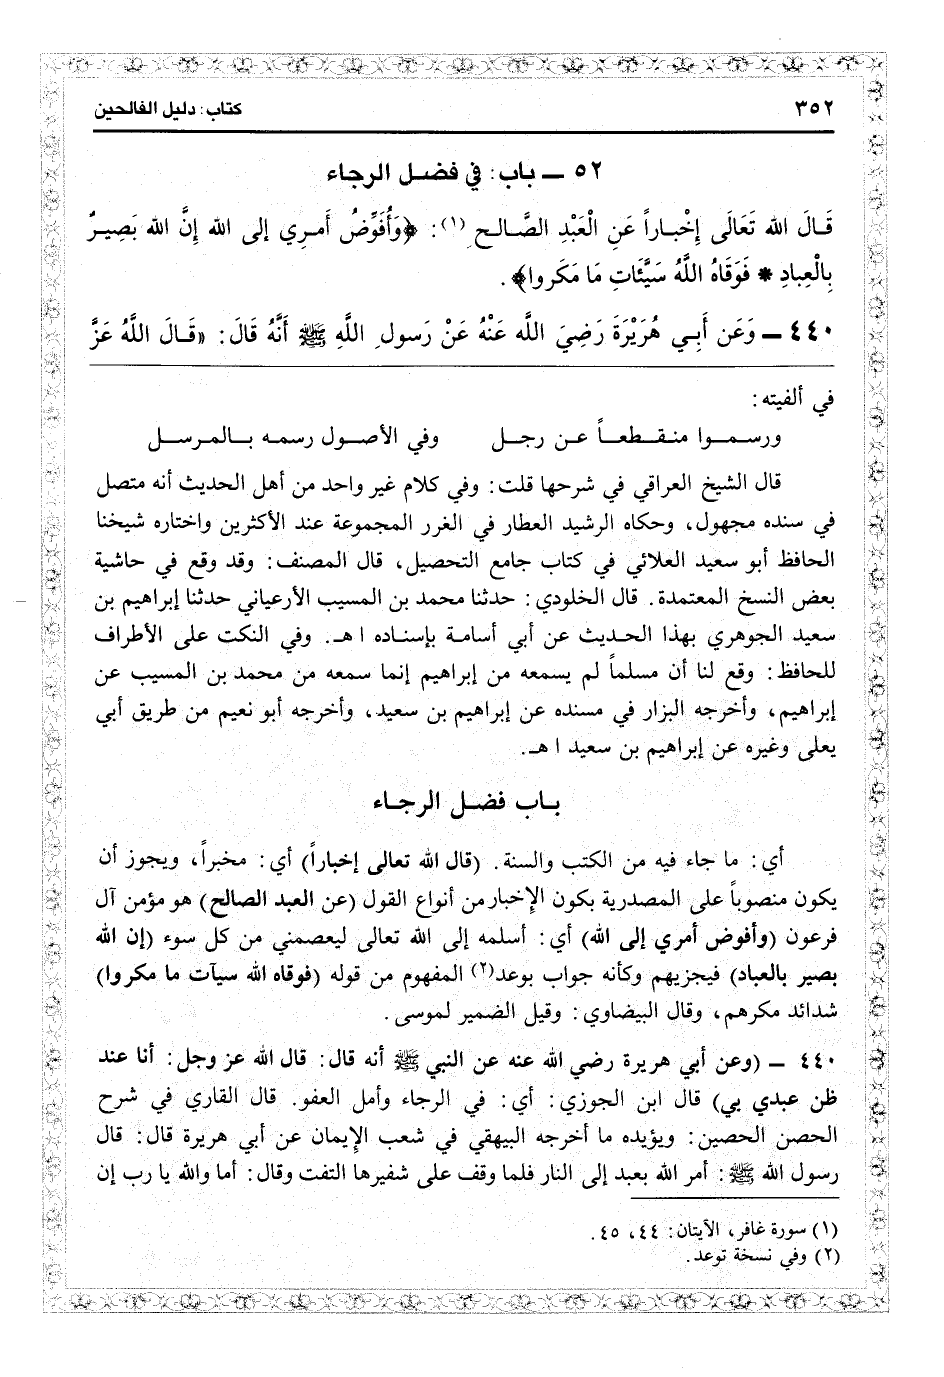 ٣٥٢
كتاب: دليل الفالحين
٥٢ ــ باب: في فضل الرجاء
قَالَ الله تَعَالَى إِخْبَاراً عَنِ الْعَبْدِ الصَّالحِ (١): ﴿وَأُفَوِّضُ أَمرِي إلى الله إنَّ الله بَصِيرٌ
بِالْعِبادِ * فَوَقَاهُ اللَّهُ سَيَّئَاتِ مَا مَكَروا﴾.
٤٤٠ ــ وَعَن أَبِي هُرَيْرَةَ رَضِيَ اللَّه عَنْهُ عَنْ رَسولِ اللَّهِ ﷺ أَنَّهُ قَالَ: «قَالَ اللَّهُ عَزَّ
في ألفيته:
ورسموا منقطعاً عن رجل وفي الأصول رسمه بالمرسل
قال الشيخ العراقي في شرحها قلت: وفي كلام غير واحد من أهل الحديث أنه متصل
في سنده مجهول، وحكاه الرشيد العطار في الغرر المجموعة عند الأكثرين واختاره شيخنا
الحافظ أبو سعيد العلائي في كتاب جامع التحصيل، قال المصنف: وقد وقع في حاشية
بعض النسخ المعتمدة. قال الخلودي: حدثنا محمد بن المسيب الأرعياني حدثنا إبراهيم بن
سعيد الجوهري بهذا الحديث عن أبي أسامة بإسناده ا هـ. وفي النكت على الأطراف
للحافظ: وقع لنا أن مسلماً لم يسمعه من إبراهيم إنما سمعه من محمد بن المسيب عن
إبراهيم، وأخرجه البزار في مسنده عن إبراهيم بن سعيد، وأخرجه أبو نعيم من طريق أبي
يعلى وغيره عن إبراهيم بن سعيد ا هـ.
باب فضل الرجاء
أي: ما جاء فيه من الكتب والسنة. (قال الله تعالى إخباراً) أي: مخبراً، ويجوز أن
يكون منصوباً على المصدرية بكون الإخبار من أنواع القول (عن العبد الصالح) هو مؤمن آل
فرعون (وأفوض أمري إلى الله) أي: أسلمه إلى الله تعالى ليعصمني من كل سوء (إن الله
بصير بالعباد) فيجزيهم وكأنه جواب بوعد(٢) المفهوم من قوله (فوقاه الله سيآت ما مكروا)
شدائد مكرهم، وقال البيضاوي: وقيل الضمير لموسى.
٤٤٠ ــ (وعن أبي هريرة رضي الله عنه عن النبي ﷺ أنه قال: قال الله عز وجل: أنا عند
ظن عبدي بي) قال ابن الجوزي: أي: في الرجاء وأمل العفو. قال القاري في شرح
الحصن الحصين: ويؤيده ما أخرجه البيهقي في شعب الإيمان عن أبي هريرة قال: قال
رسول الله ﷺ: أمر الله بعبد إلى النار فلما وقف على شفيرها التفت وقال: أما والله يا رب إن
(١) سورة غافر، الآيتان: ٤٤، ٤٥.
(٢) وفي نسخة توعد.